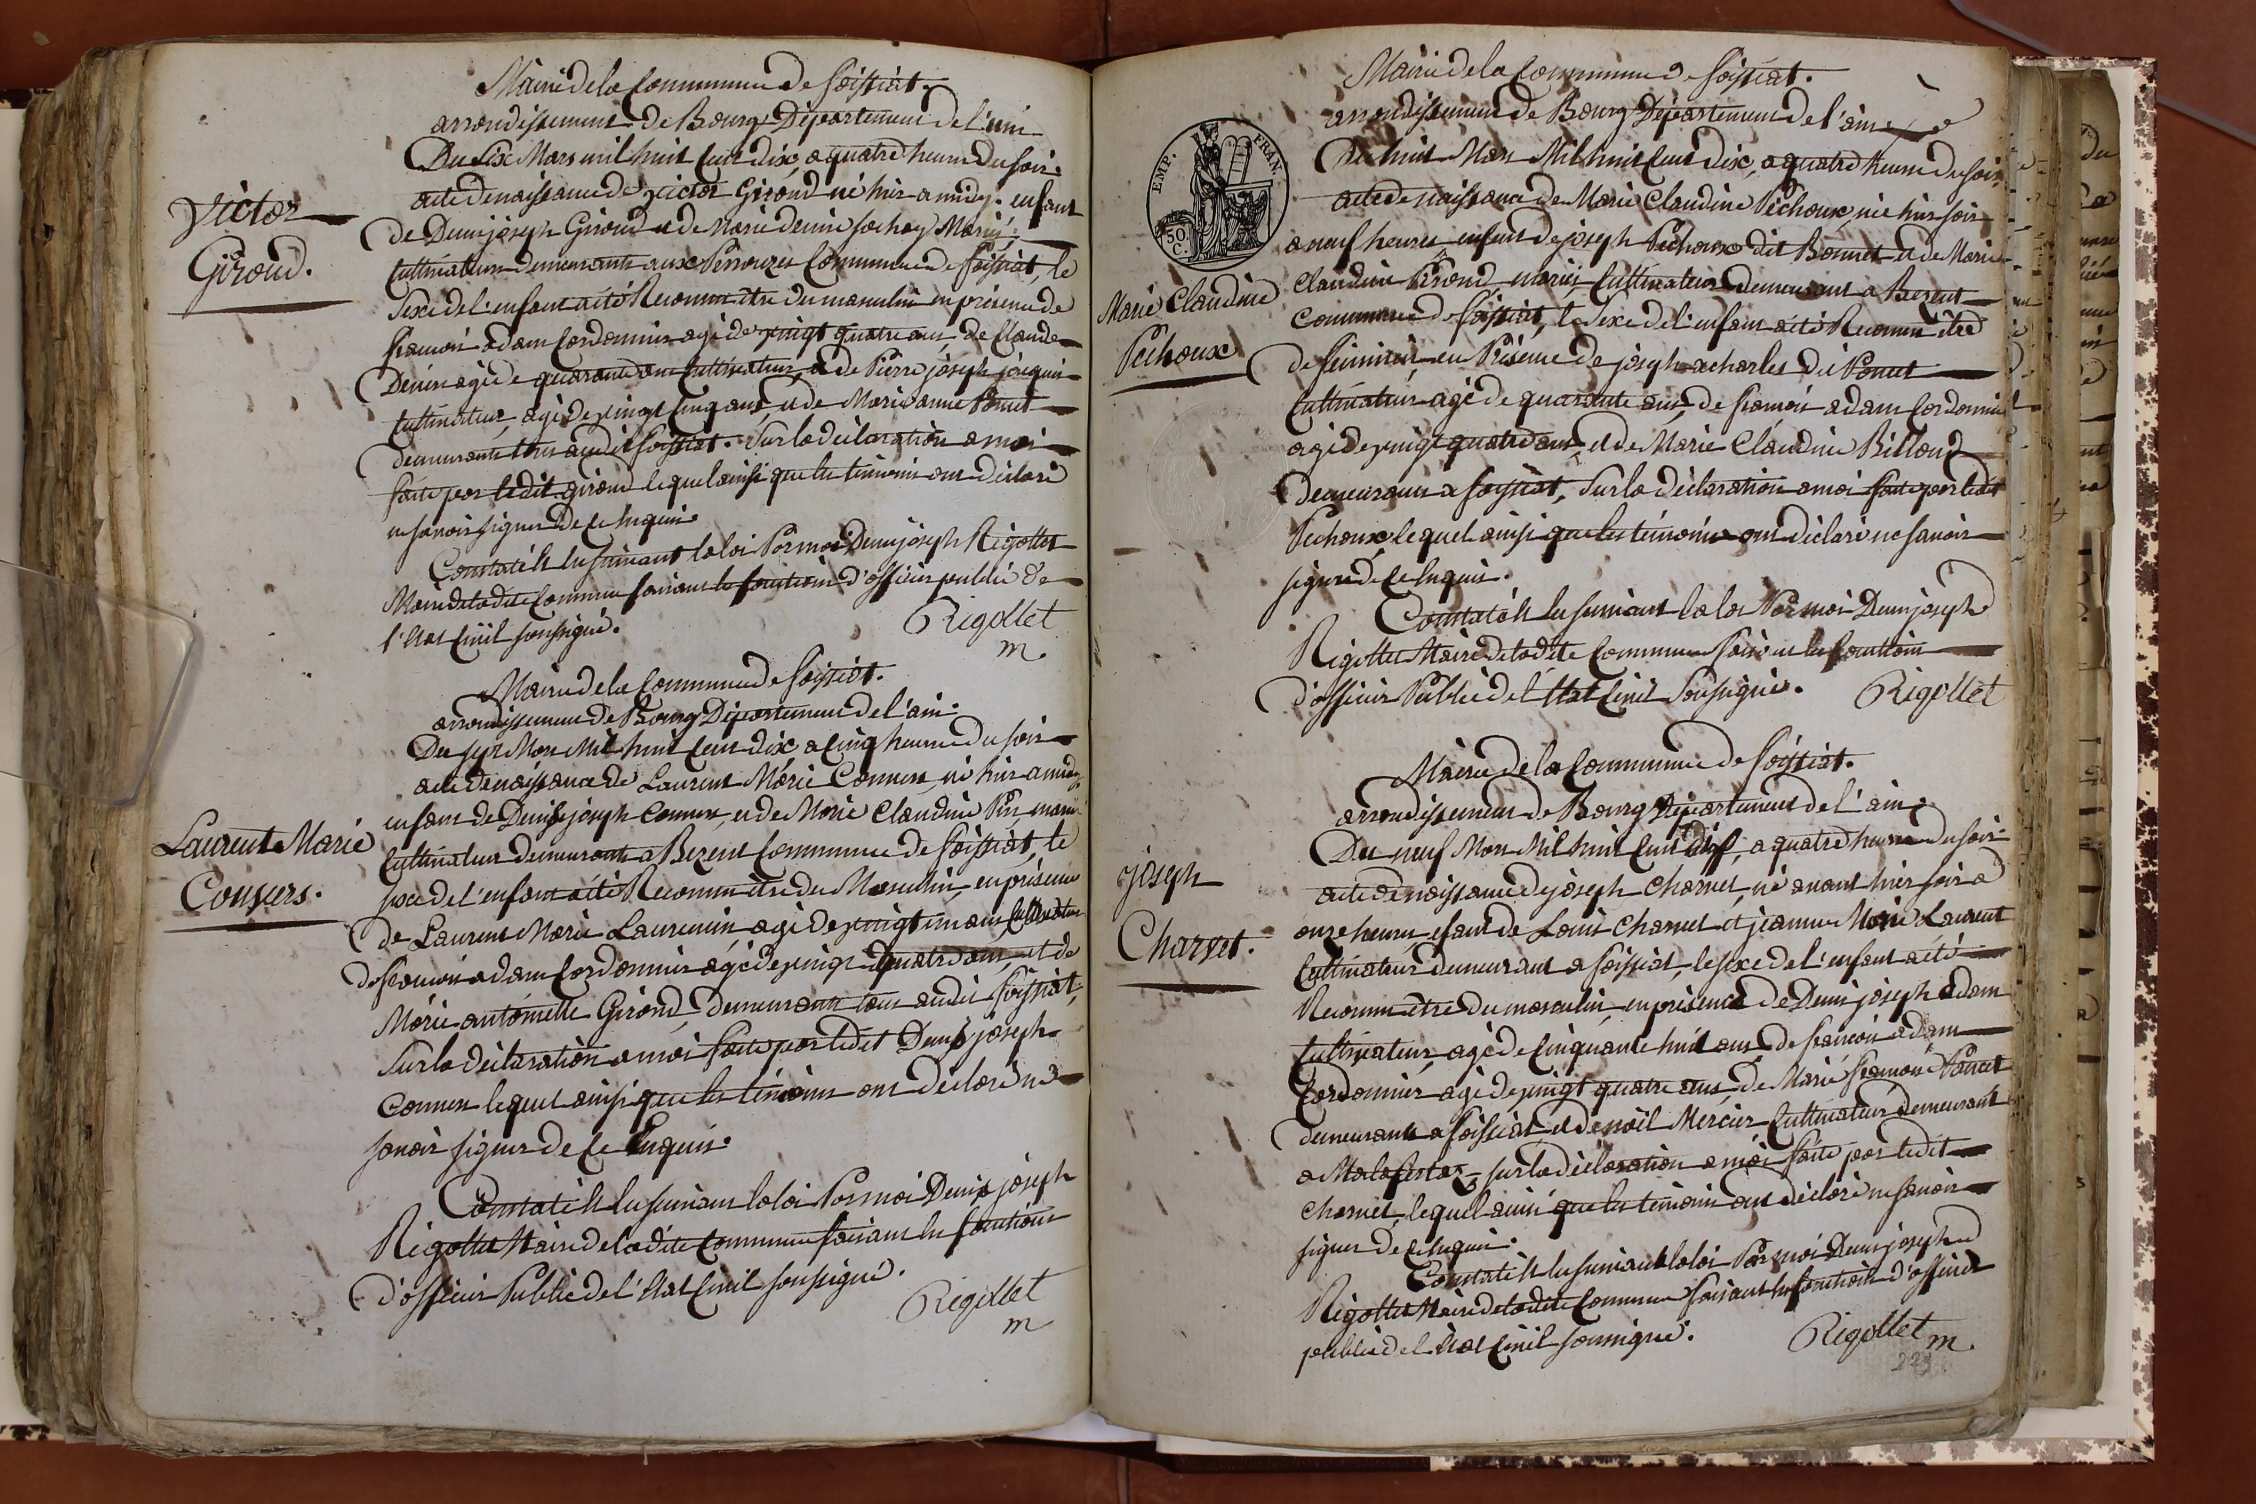 Mairie de la Commune de foissiat.
arrondissement de Bourg Département de l'ain
Du Six Mars mil huit Cent dix, a quatre heure du soir.
acte de naissance de victor Giroud né hier a midy. enfant
de Denis joseph Giroud et de Marie denise sochay Mariés
Cultivateurs demeurants aux Perrouzes Commune de foissiat, le
Sexe de l'enfant a été Reconnu être du masculin en présence de
françois adam Cordonnier agé de vingt quatre ans de Claude
Denis agé de quarante ans Cultivateur, et de Pierre joseph
Cultivateur, agé de vingt Cinq ans, et de Marie anne Poncet
demeurants tous audit foissiat. Sur la déclaration a moi
faite par ledit giroud lequel ainsi que les témoins ont déclaré
ne savoir signer de Ce Enquis
Victor
Giroud.
Constaté suivant la loi Par moi Denis joseph Rigollet
Maire de ladite Commune faisant les fonctions d'officier public de
l'état Civil soussigné.
Rigollet
m
Mairie de la Commune de foissiat.
arrondissement de Bourg Département de l'ain.
Du sept Mars Mil huit Cent dix a Cinq heure du soir
acte de naissance de Laurent Marie Convers, né hier a midy
enfant de Denis joseph Convers, et de Marie Claudine mariés
Cultivateurs demeurants a Bezent Commune de foissiat, le
sexe de l'enfant a été Reconnu être du Masculin, en présence
de Laurent Marie Laurencin agé de vingt un ans Cultivateur
de françois adam Cordonnier agé de vingt quatre ans, et de
Marie antoinette Giroud demeurants tous audit foissiat,
Sur la déclaration a moi faite par ledit Denis joseph
Convers lequel ainsi que les témoins ont déclaré ne
savoir signer de Ce Enquis.
Laurent Marie
Convers.
Constaté suivant la loi Par moi Denis joseph
Rigollet Maire de ladite Commune faisant les fonctions
d'officier Public de l'état Civil soussigné.
Rigollet
m
Mairie de la Commune de foissiat.
arrondissement de Bourg Département de l'ain
Du huit Mars Mil huit Cent dix, a quatre heure du soir
acte de naissance de Marie Claudine Pechoux née hier soir
a neuf heures enfant de joseph Pechoux dit Bonnet et de Marie
Claudine mariés Cultivateurs demeurant a Bezent
Commune de foissiat, le sexe de l'enfant a été Reconnu être
du féminin, en Présence de joseph acharles dit Poncet
Cultivateur agé de quarante ans, de françois adam Cordonnier
agé de vingt quatre ans, et de Marie Claudine Billoud
demeurants a foissiat, Sur la déclaration a moi faite par ledit
Pechoux, lequel ainsi que les témoins ont déclaré ne savoir
signer de Ce Enquis.
EMP. FRAN.
50 C.
Marie Claudine
Pechoux
Constaté suivant la loi Par moi Denis joseph
Rigollet Maire de ladite Commune faisant les fonctions
d'officier Public de l'état Civil Soussigné.
Rigollet
Mairie de la Commune de foissiat.
arrondissement de Bourg Département de l'ain.
Du neuf Mars Mil huit Cent dix, a quatre heure du soir
acte de naissance de joseph Charvet, né avant hier soir a
onze heures, efant de Louis Charvet et jeanne Marie Laurent
Cultivateurs demeurant a foissiat, le sexe de l'enfant a été
Reconnu être du masculin, en présence de Denis joseph adam
Cultivateur, agé de Cinquante huit ans, de françois adam
Cordonnier, agé de vingt quatre ans de Marie françoise Poncet
demeurants a foissiat et de noël Mercier Cultivateur demeurant
a Malafertaz, sur la déclaration a moi faite par ledit
Charvet, lequel ainsi que les témoins ont déclaré ne savoir
signer de Ce Enquis.
joseph
Charvet.
Constaté suivant la loi Par moi Denis joseph
Rigollet Maire de ladite Commune faisant les fonctions d'officier
public de l'état Civil soussigné.
Rigollet
m